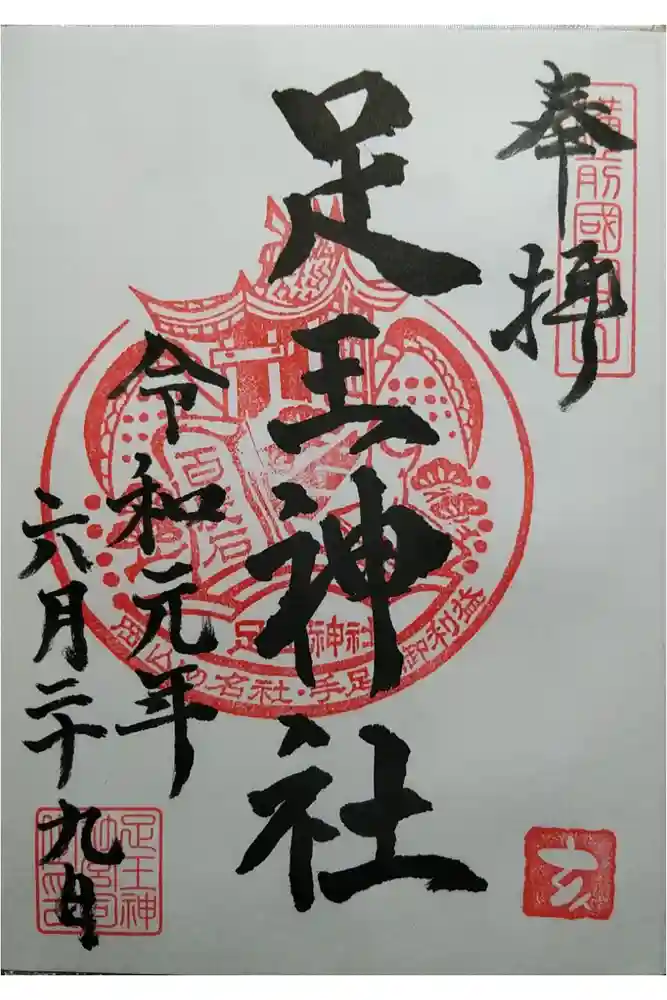 奉拝
足王神社
令和元年
六月二十九日
足王神社
岡山の名社・手足御利益
亥